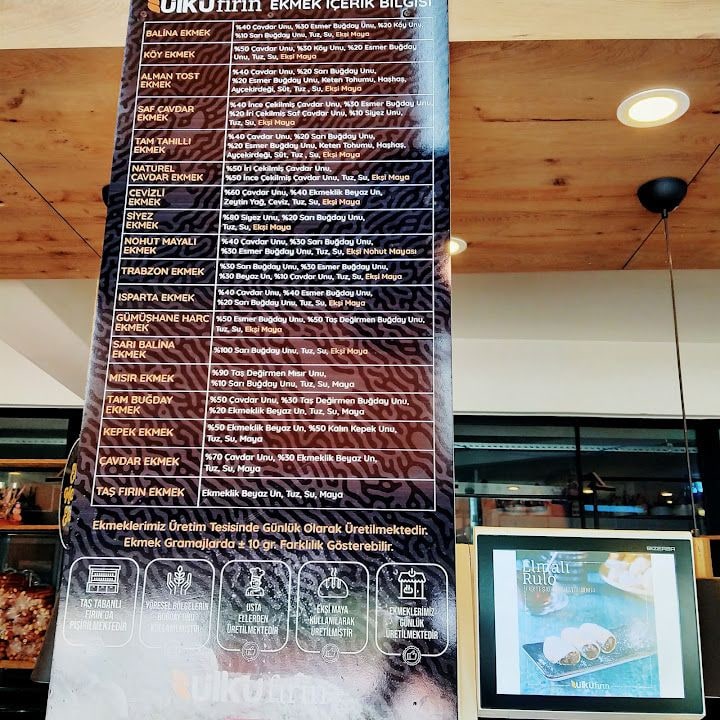 ulkUfirin EKMEK İÇERİK BİLGİSİ
BALİNA EKMEK
%40 Çavdar Unu, %30 Esmer Buğday Unu, %20 Köy Unu,
%10 Sarı Buğday Unu, Tuz, Su, Ekşi Maya
KÖY EKMEK
%50 Çavdar Unu, %30 Köy Unu, %20 Esmer Buğday
Unu, Tuz, Su, Ekşi Maya
ALMAN TOST
EKMEK
%40 Çavdar Unu, %20 Sarı Buğday Unu,
%20 Esmer Buğday Unu, Keten Tohumu, Haşhaş,
Ayçekirdeği, Süt, Tuz , Su, Ekşi Maya
SAF ÇAVDAR
EKMEK
%40 İnce Çekilmiş Çavdar Unu, %30 Esmer Buğday Unu,
%20 İri Çekilmiş Saf Çavdar Unu, %10 Siyez Unu,
Tuz, Su, Ekşi Maya
TAM TAHILLI
EKMEK
%40 Çavdar Unu, %20 Sarı Buğday Unu,
%20 Esmer Buğday Unu, Keten Tohumu, Haşhaş,
Ayçekirdeği, Süt, Tuz , Su, Ekşi Maya
NATUREL
ÇAVDAR EKMEK
%50 İri Çekilmiş Çavdar Unu,
%50 İnce Çekilmiş Çavdar Unu, Tuz, Su, Ekşi Maya
CEVİZLİ
EKMEK
%60 Çavdar Unu, %40 Ekmeklik Beyaz Un,
Zeytin Yağ, Ceviz, Tuz, Su, Ekşi Maya
SİYEZ
EKMEK
%80 Siyez Unu, %20 Sarı Buğday Unu,
Tuz, Su, Ekşi Maya
NOHUT MAYALI
EKMEK
%40 Çavdar Unu, %30 Sarı Buğday Unu,
%30 Esmer Buğday Unu, Tuz, Su, Ekşi Nohut Mayası
TRABZON EKMEK
%30 Sarı Buğday Unu, %30 Esmer Buğday Unu,
%30 Beyaz Un, %10 Çavdar Unu, Tuz, Su, Ekşi Maya
ISPARTA EKMEK
%40 Çavdar Unu, %40 Esmer Buğday Unu,
%20 Sarı Buğday Unu, Tuz, Su, Ekşi Maya
GÜMÜŞHANE HARC
EKMEK
%50 Esmer Buğday Unu, %50 Taş Değirmen Buğday Unu,
Tuz, Su, Ekşi Maya
SARI BALİNA
EKMEK
%100 Sarı Buğday Unu, Tuz, Su, Ekşi Maya
MISIR EKMEK
%90 Taş Değirmen Mısır Unu,
%10 Sarı Buğday Unu, Tuz, Su, Maya
TAM BUĞDAY
EKMEK
%50 Çavdar Unu, %30 Taş Değirmen Buğday Unu,
%20 Ekmeklik Beyaz Un, Tuz, Su, Maya
KEPEK EKMEK
%50 Ekmeklik Beyaz Un, %50 Kalın Kepek Unu,
Tuz, Su, Maya
ÇAVDAR EKMEK
%70 Çavdar Unu, %30 Ekmeklik Beyaz Un,
Tuz, Su, Maya
TAŞ FIRIN EKMEK
Ekmeklik Beyaz Un, Tuz, Su, Maya
Ekmeklerimiz Üretim Tesisinde Günlük Olarak Üretilmektedir.
Ekmek Gramajlarda ± 10 gr. Farklılık Gösterebilir.
TAŞ TABANLI
FIRIN'DA
PİŞİRİLMEKTEDİR
YÖRESEL BÖLGELERİN
BUĞDAY UNU
KULLANILMIŞTIR
USTA
ELLERDEN
ÜRETİLMEKTEDİR
EKŞİ MAYA
KULLANILARAK
ÜRETİLMİŞTİR
EKMEKLERİMİZ
GÜNLÜK
ÜRETİLMEKTEDİR
ulkUfirin
BIZERBA
Elmalı
Rulo
ulkUfirin